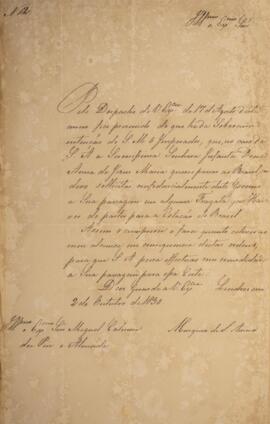 N. 12
Illmo e Exmo Snr
Pelo Despacho de V. Exa de 17 de Agosto d'este
anno fui prevenido de que he da Soberana
intenção de S. M. o Imperador, que, no caso de
S. A. a Serenissima Senhora Infanta Dona
Anna de Jesus Maria querer passar ao Brasil,
solicite deste Governo
a Sua passagem em alguma Fragata, que
de partir para a Estação do Brasil
Assim o cumprirei e farei quanto estiver ao
meu alcance, em consequencia destas ordens,
para que S. A. possa effectuar com commodidade
a Sua passagem para essa Corte.
Deos Guarde a V. Exa Londres em
2 de Outubro de 1830
Illmo e Exmo Snr Miguel Calmon
du Pin e Almeida
Marquez de S. Amaro